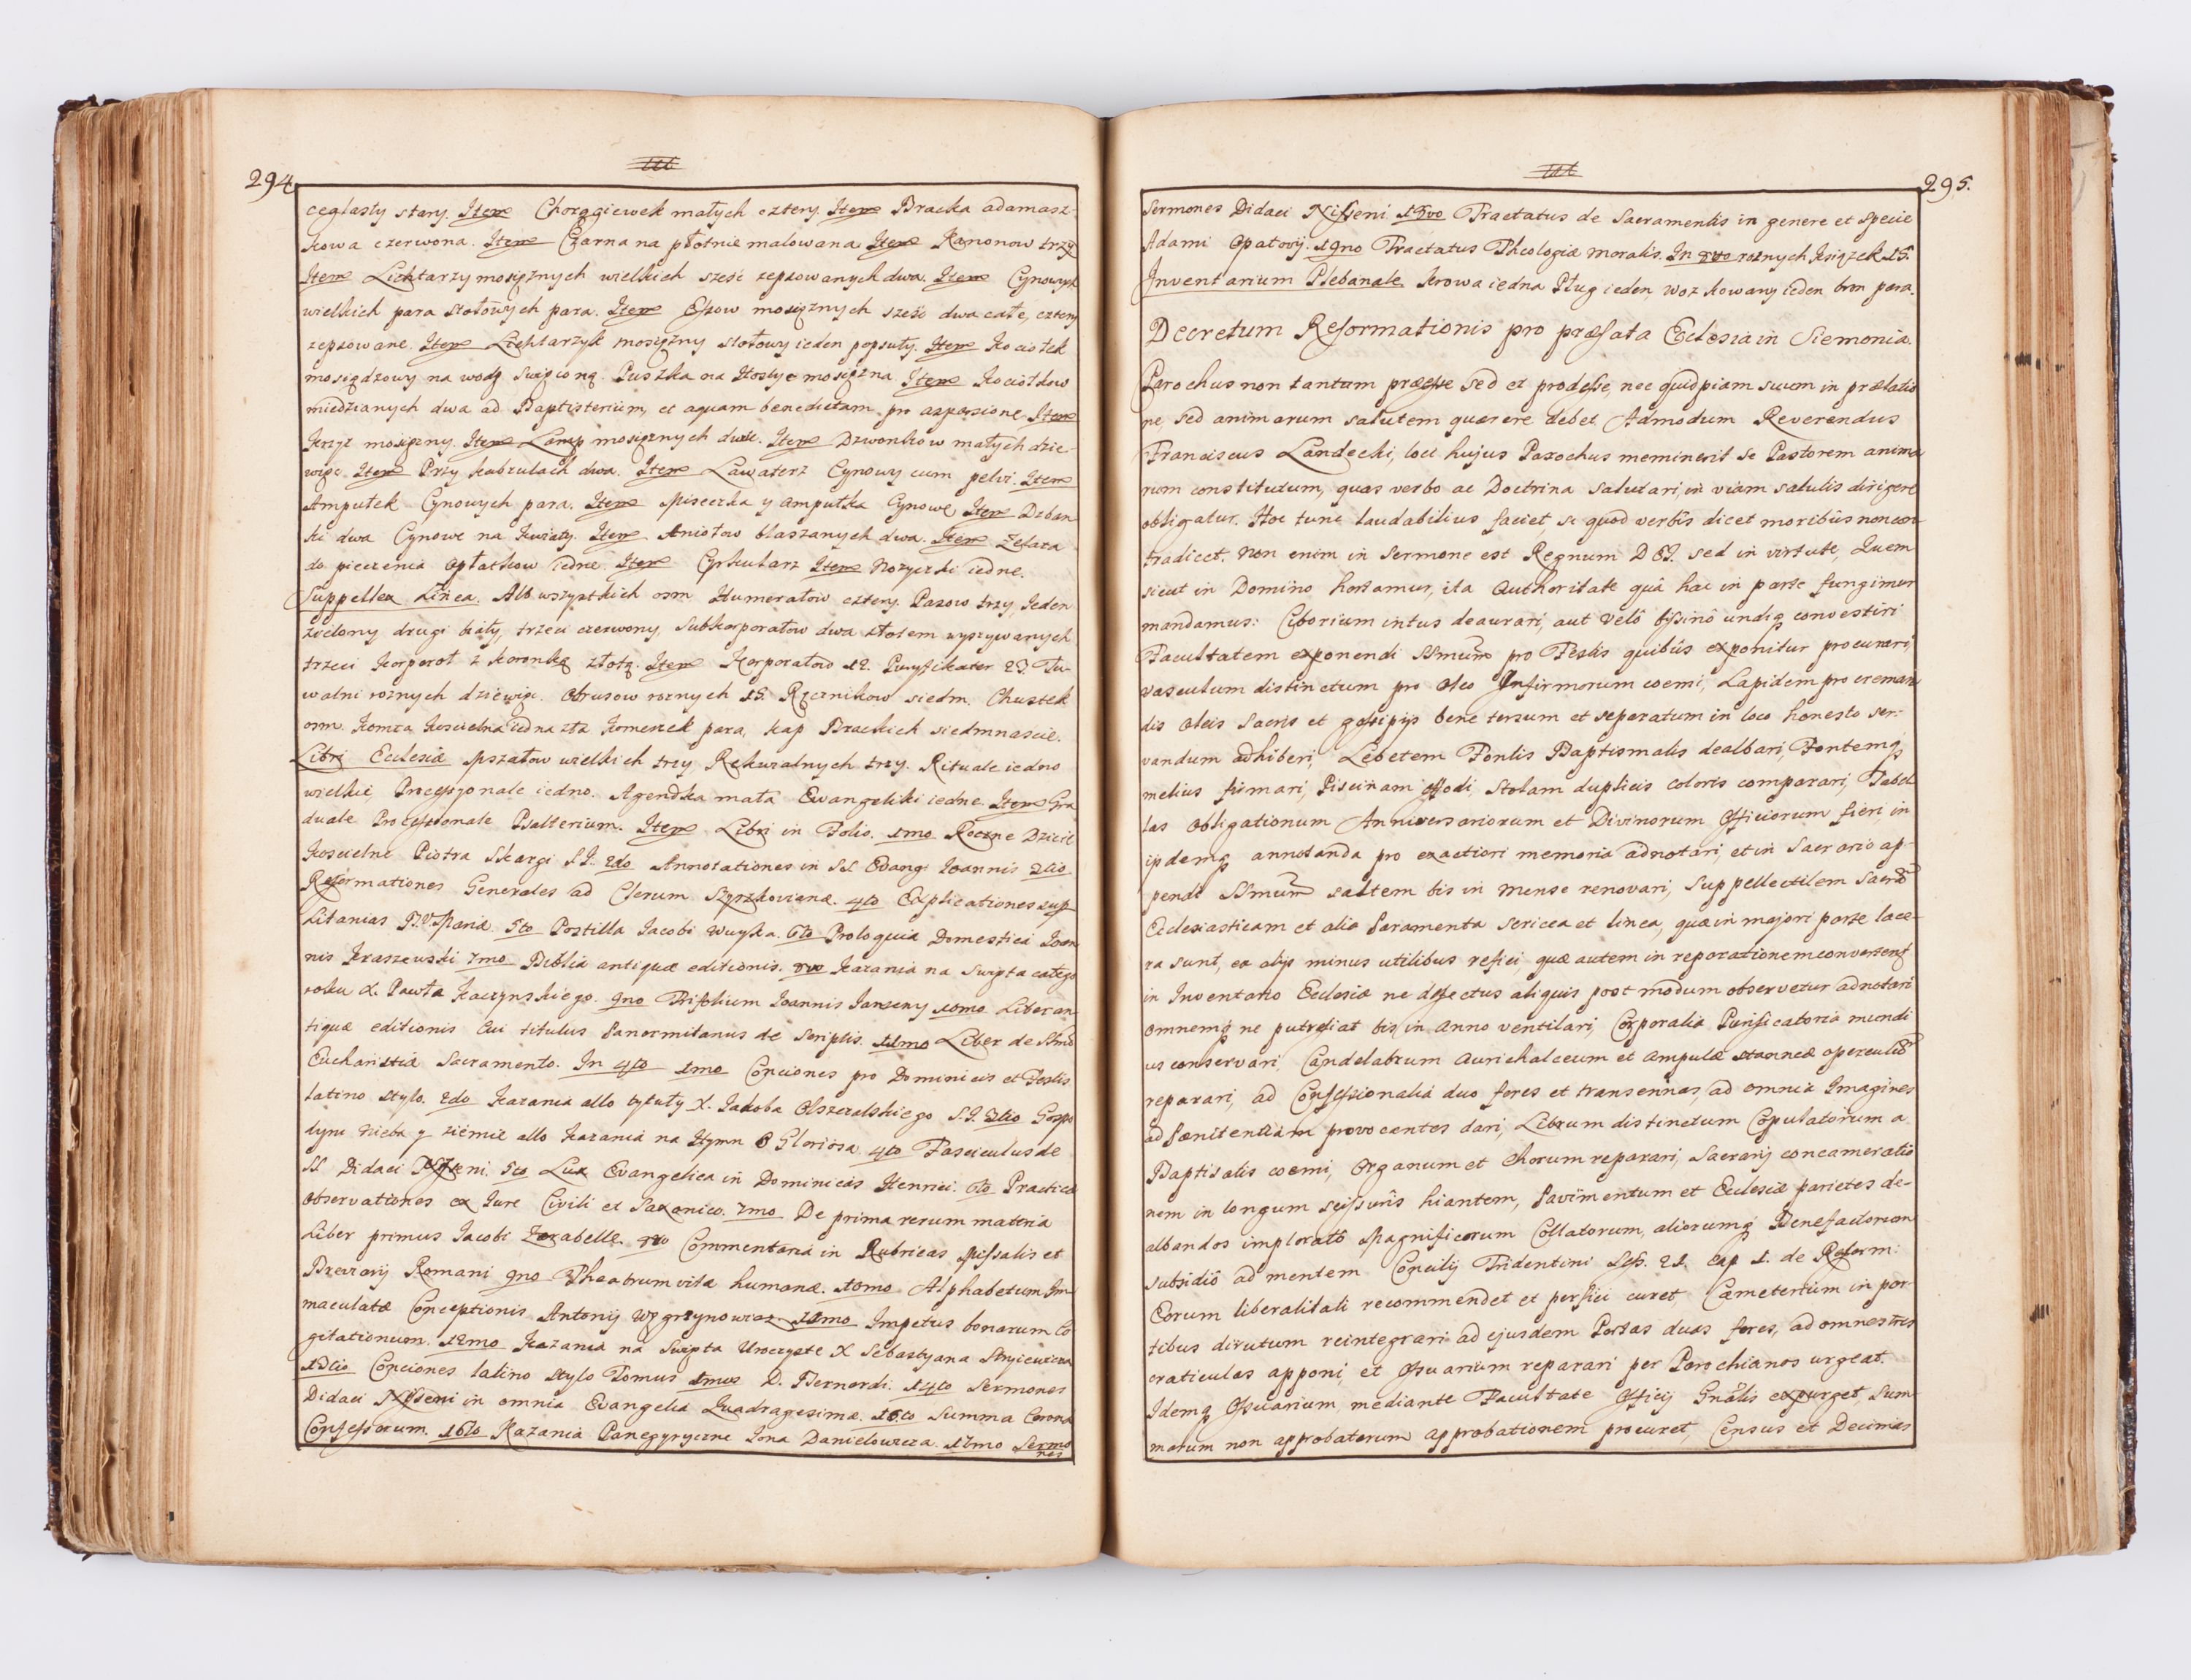 294
ceglasty stary. Item Chorągiewek małych cztery. Item Bracka adamasz-
kowa czerwona. Item Czarna na płotnie malowana Item Kanonow trzy
Item Lichtarzy mosiężnych wielkich sześć zepsowanych dwa. Item Cynowych
wielkich para stołowych para. Item Esow mosiężnych sześć dwa całe, cztery
zepsowane. Item Lichtarzyk mosiężny stołowy ieden popsuty. Item Kociołek
mosiądzowy na wodę święconą. Puszka na Hostye mosiężna Item Kociołkow
miedzianych dwa ad Baptisterium, et aquam benedictam pro aspersione Item
Krzyż mosiężny. Item Lamp mosiężnych dwie. Item Dzwonkow małych dzie-
więć. Item Przy kabzulach dwa. Item Lawaterz Cynowy cum pelvi. Item
Ampułek Cynowych para. Item Miseczka y ampułka Cynowe Item Dzban
ki dwa Cynowe na kwiaty. Item Aniołow blaszanych dwa. Item Żelaza
do pieczenia opłatkow iedne. Item Cyrkularz Item Nożyczki iedne.
Suppellex Linea. Alb wszystkich osm Humerałow cztery. Pasow trzy, Jeden
zielony drugi biały, trzeci czerwony, Subkorporałow dwa złotem wyszywanych
trzeci Korporał z koronką złotą. Item Korporałow 12. Puryfikater 23. Tu-
walni rożnych dziewięć. Obrusow rożnych 15. Ręcznikow siedm. Chustek
osm. Komża Koscielna iedna zła Komeżek para, kap Brackich siedmnascie.
Libri Ecclesiæ Mszałow wielkich trzy Rekwialnych trzy. Rituale iedno
wielkie, Processyonale iedno. Agendka mała Ewangeliki iedne. Item Gra
duale Processionale Psalterium. Item Libri in Folio. 1mo Roczne Dzieie
Koscielne Piotra Skargi S.J. 2do Annotationes in SS. Evang. Ioannis 3tio
Reformationes Generales ad Clerum Szyszkovianæ. 4to Explicationes sup
Litanias B.V. Mariæ. 5to Postilla Jacobi Wuyka. 6to Proloquia Domestica Ioan
nis Kraszewski 7mo Biblia antiquæ editionis. 8vo Kazania na Swięta całego
roku X. Pawła Kaczynskiego. 9no Trifolium Ioannis Janseny 10mo Liber an-
tiquæ editionis cui titulus Panormitanus de Scriptis. 11mo Liber de SSmo
Eucharistiæ Sacramento. In 4to 1mo Conciones pro Dominicis et Festis
latino stylo. 2do Kazania albo tytuły X. Jakoba Olszewskiego S.J. 3tio Gospo
dyni nieba y ziemie albo Kazania na Hymn O Gloriosa 4to Fasciculus de
SS. Didaci Nisseni. 5to Lux Evangelica in Dominicas Henrici. 6to Practicæ
observationes ex Iure Civili et Saxonico. 7mo De prima rerum materia
Liber primus Iacobi Zarabelle. 8vo Commentaria in Rubricas Missalis et
Breviarij Romani 9no Theatrum vitæ humanæ. 10mo Alphabetum Im-
maculatæ Conceptionis Antonij Węgrzynowicz 11mo Impetus bonarum Co
gitationum. 12mo Kazania na Swięta Uroczyste X Sebastyana
13tio Conciones latino stylo Tomus 1mus D. Bernardi. 14to Sermones
Didaci Nisseni in omnia Evangelia Quadragesimæ. 15.to Summa Corona
Confessorum. 16to Kazania Panegyryczne Iona Danielowicza. 17mo Sermo
nes
295.
Sermones Didaci Nisseni. 18vo Tractatus de Sacramentis in genere et specie
Adami Opatovij. 19no Tractatus Theologiæ moralis. In 8vo rożnych Książek 15.
Inventarium Plebanale. Krowa iedna Pług ieden, woz kowany ieden bron para.
Decretum Reformationis pro præfata Ecclesia in Siemonia.
Parochus non tantum præesse sed et prodesse, nec quidpiam suum in prælatio
ne, sed animarum salutem quærere debet. Admodum Reverendus
Franciscus Landecki, loci hujus Parochus meminerit se Pastorem anima
rum constitutum, quas verbo ac Doctrina salutari, in viam salutis dirigere
obligatur. Hoc tunc laudabilius faciet, si quod verbis dicet moribus non con-
tradicet. Non enim in Sermone est Regnum DEI. sed in virtute, Quem
sicut in Domino hortamur, ita Authoritate quâ hac in parte fungimur
mandamus: Ciborium intus deaurari, aut velô byssinô undiq convestiri
Facultatem exponendi SSmum pro Festis quibûs exponitur procurari,
vasculum distinctum pro Oleo Infirmorum coemi, Lapidem pro creman
dis Oleis Sacris et gossipijs bene tersum et separatum in loco honesto ser-
vandum adhiberi, Lebetem Fontis Baptismalis dealbari, Fontemq
melius firmari, Piscinam effodi, Stolam duplicis coloris comparari, Tabel
las Obligationum Anniversariorum et Divinorum Officiorum fieri, in
ijsdemq annotanda pro exactiori memoria adnotari, et in Sacrario ap-
pendi SSmum saltem bis in mense renovari, Suppellectilem Sacrã
Ecclesiasticam et alia Paramenta sericea et linea, quæ in majori parte lace-
ra sunt, ex alijs minus utilibus refici, quæ autem in reparationem convertent
in Inventario Ecclesiæ ne defectus aliquis post modum observetur adnotari
omnemq ne putrefiat bis in anno ventilari, Corporalia Purificatoria mundi
us conservari, Candelabrum Aurichalceum et Ampulæ stanneæ operculũ
reparari, ad Confessionalia duo fores et transennas, ad omnia Imagines
ad Pænitentiam provocantes dari, Librum distinctum Copulatorum a
Baptisatis coemi, Organum et Chorum reparari, Sacrarij concameratio
nem in longum scissuris hiantem, Pavimentum et Ecclesiæ parietes de-
albandos implorato Magnificorum Collatorum, aliorumq Benefactorum
subsidiô ad mentem Concilij Tridentini Sess. 21. Cap 1. de Reform:
Eorum liberalitati recommendet et perfici curet, Cæmeterium in par-
tibus dirutum reintegrari ad ejusdem Portas duas fores, ad omnes tres
craticulas apponi, et Ossuarium reparari per Parochianos urgeat.
Idemq Ossuarium, mediante Facultate Officij Gnâlis expurget, Sum-
marum non approbatarum approbationem procuret, Census et Decimas